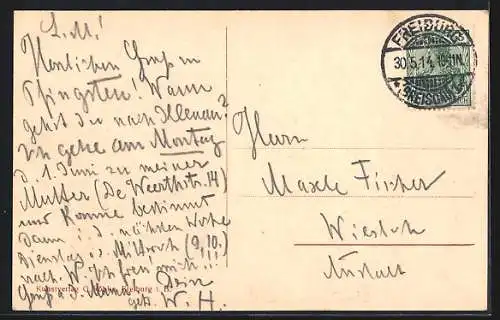 L. M.!
Herzlichen Gruß zu
Pfingsten! Wann
gehst du nach Illenau?
Ich gehe am Montag
d. 1. Juni zu meiner
Mutter (De Weerthstr. 14)
und komme bestimmt
dann i. d. nächsten Woche
Dienstag od. Mittwoch (9./10.)
nach W. Ich freu mich!!
Gruß a. d. Mama Dein
W. H.
Kunstverlag Freiburg i. B.
FREIBURG
30.5.14.
* (BREISGAU)
Herrn
Fischer
Wiesloch
Anstalt